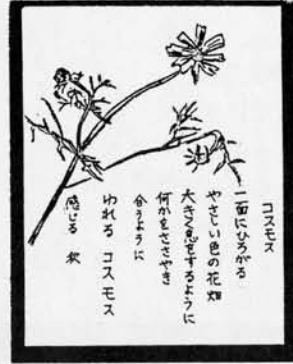 コスモス
一面にひろがる
やさしい色の花畑
大きく息をするように
何かをささやき
合うように
ゆれる コスモス
感じる 秋